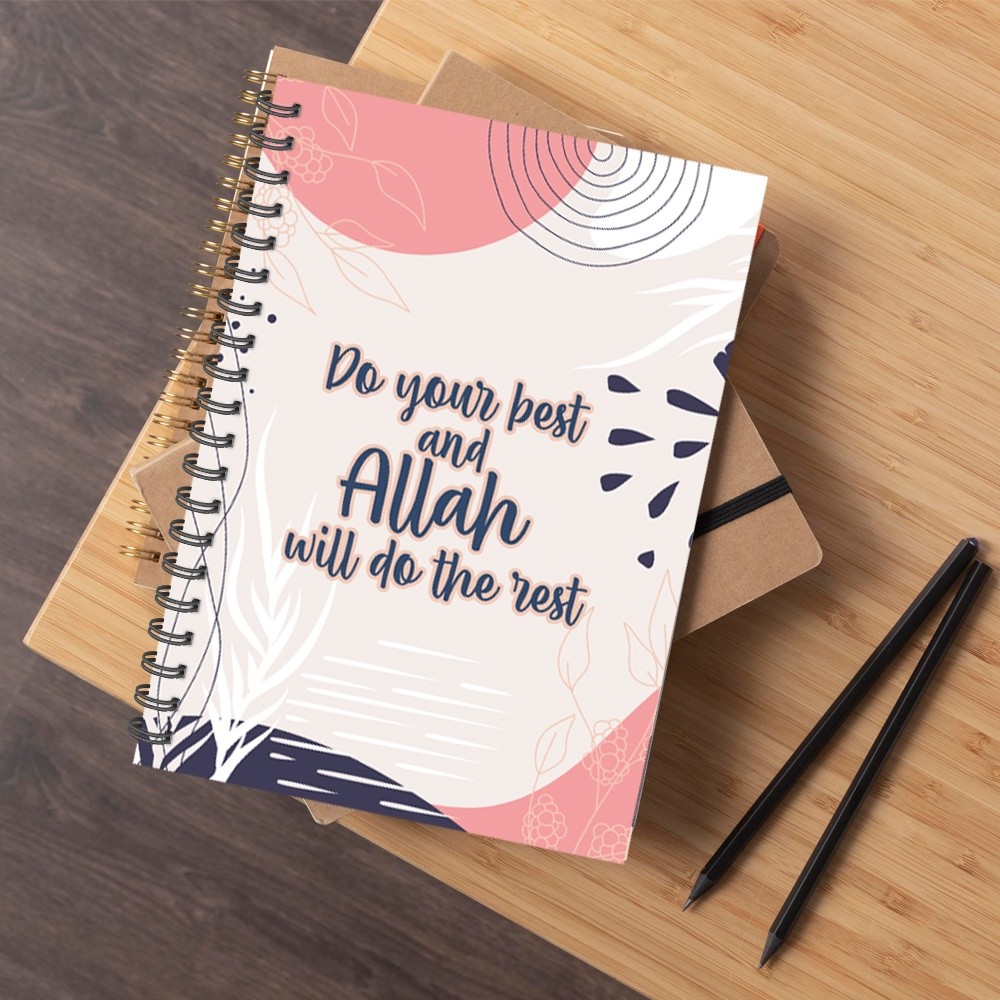 Do your best
and
Allah
will do the rest